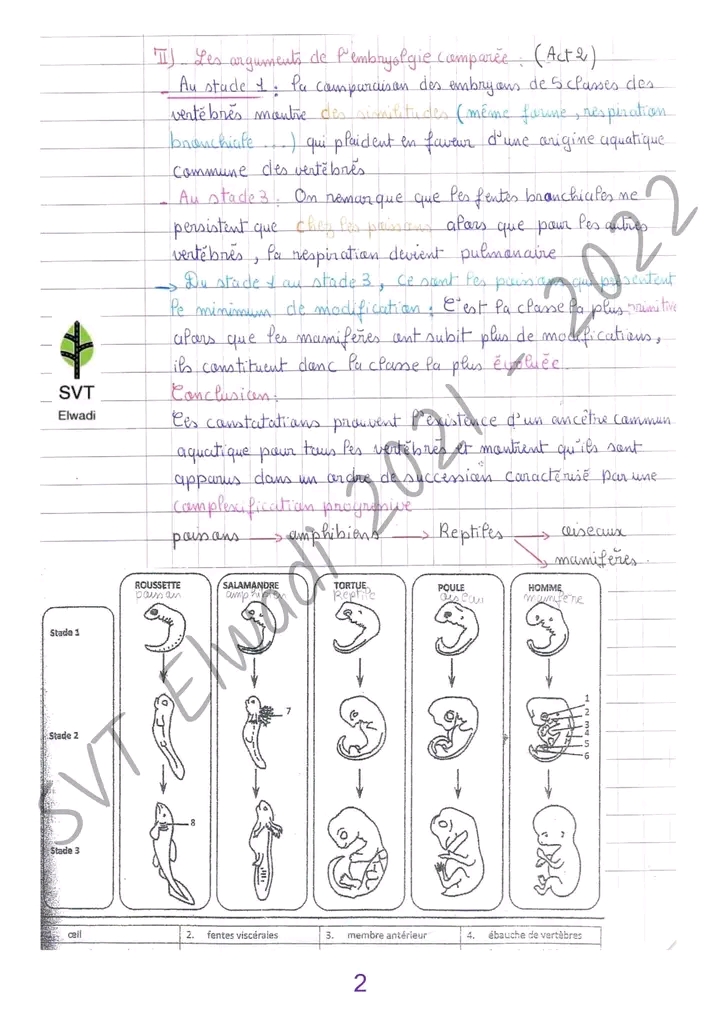 II)_ Les arguments de l'embryolgie comparée : (Act 2)
- Au stade 1 : la comparaison des embryons de 5 classes des
vertébrés montre des similitudes (même forme, respiration
branchiale ...) qui plaident en faveur d'une origine aquatique
commune des vertébrés
- Au stade 3 : On remarque que les fentes branchiales ne
persistent que chez les poissons alors que pour les autres
vertébrés, la respiration devient pulmonaire
→ Du stade 1 au stade 3, ce sont les poissons qui présentent
le minimum de modification : C'est la classe la plus primitive
alors que les mamifères ont subit plus de modifications,
ils constituent donc la classe la plus évoluée.
Conclusion :
Ces constatations prouvent l'existence d'un ancêtre commun
aquatique pour tous les vertébrés et montrent qu'ils sont
apparus dans un ordre de succession caractérisé par une
complexification progressive
poissons → amphibiens → Reptiles → oiseaux
mamifères.
SVT
Elwadi
SVT Elwadi 2021 - 2022
ROUSSETTE SALAMANDRE TORTUE POULE HOMME
poisson amphibien Reptile oiseau mamifère
Stade 1
Stade 2
7
1
2
3
4
5
6
Stade 3
8
œil 2. fentes viscérales 3. membre antérieur 4. ébauche de vertèbres
2